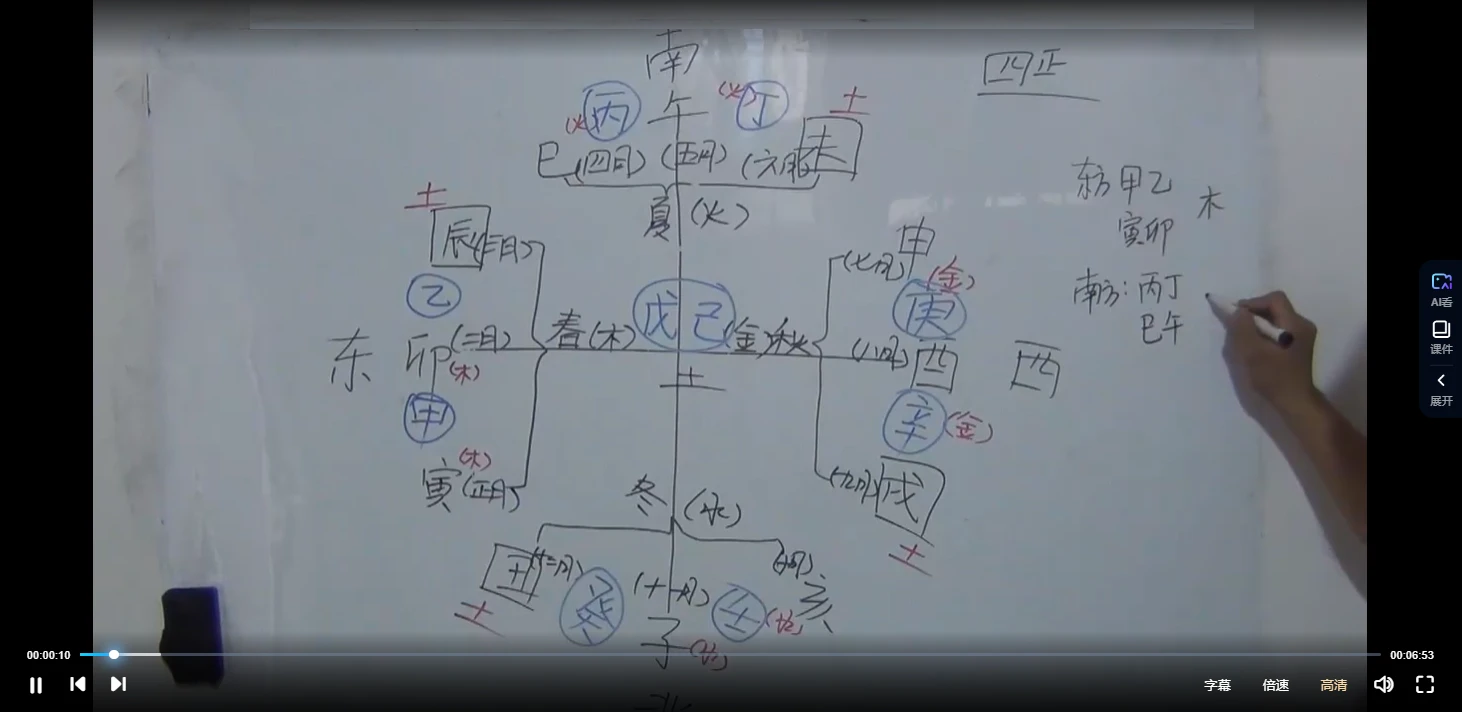 南
四正
丙 午 (火) 丁 土
(火)
巳 (四月) (五月) (六月) 未
夏 (火)
土
辰 (三月)
乙
东方 甲乙 木
寅卯
申
(七月) (金)
庚
南方: 丙丁
巳午
东 卯 (二月) 春 (木) 戊 己 (金) 秋 (八月) 酉 西
(木)
土
甲
辛 (金)
(木)
寅 (正月)
冬 (水)
(九月) 戌
土
丑 (十二月)
土
癸 (十一月) 壬 (水) (十月) 亥
子 (水)
北
AI看
课件
展开
00:00:10
00:06:53
字幕 倍速 高清